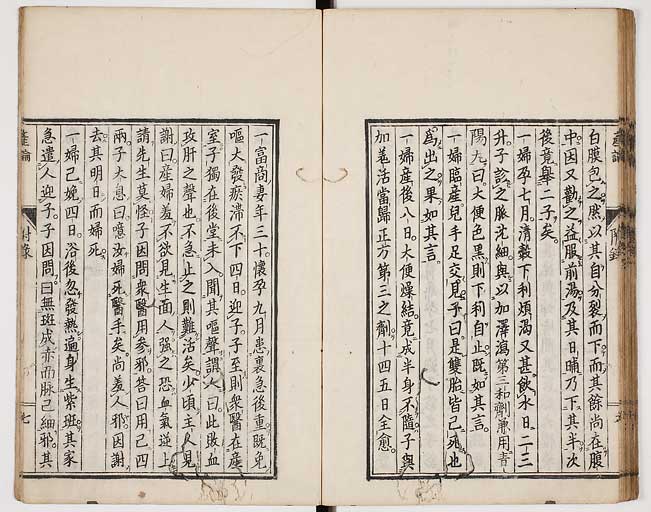 白膜包之然以其自分裂而下而其餘尚在腹
中因又勸之益服前湯及其日晡乃下其半次
後竟舉二子矣
一婦孕七月清穀下利煩渴又甚飲水日二三
升子診之脈沈細與以加澤瀉第三和劑兼用青
陽丸曰大便色黑則下利自止既如其言
一婦臨產兒手足交見子曰是雙胎皆已死也
為出之果如其言
一婦產後八日大便燥結竟成半身不隨子與
加茋活當歸正方第三之劑十四五日全愈
產論
附錄
一富商妻年三十懷孕九月患裏急後重既免
嘔大發瘀滯不下四日迎子子至則衆醫在產
室子獨在後堂未入聞其嘔聲謂人曰此敗血
攻肝之聲也不急止之則難活矣少頃主人見
謝曰產婦羞不欲見生面人强之恐血氣逆上
請先生莫怪子因問衆醫用參邪答曰用已四
兩子大息曰噫汝婦死醫手矣尚羞人邪因謝
去其明日而婦死
一婦已娩四日浴後忽發熱遍身生紫斑其家
急遣人迎子子因問曰無斑成赤而脈已細邪其
產論
附錄
七